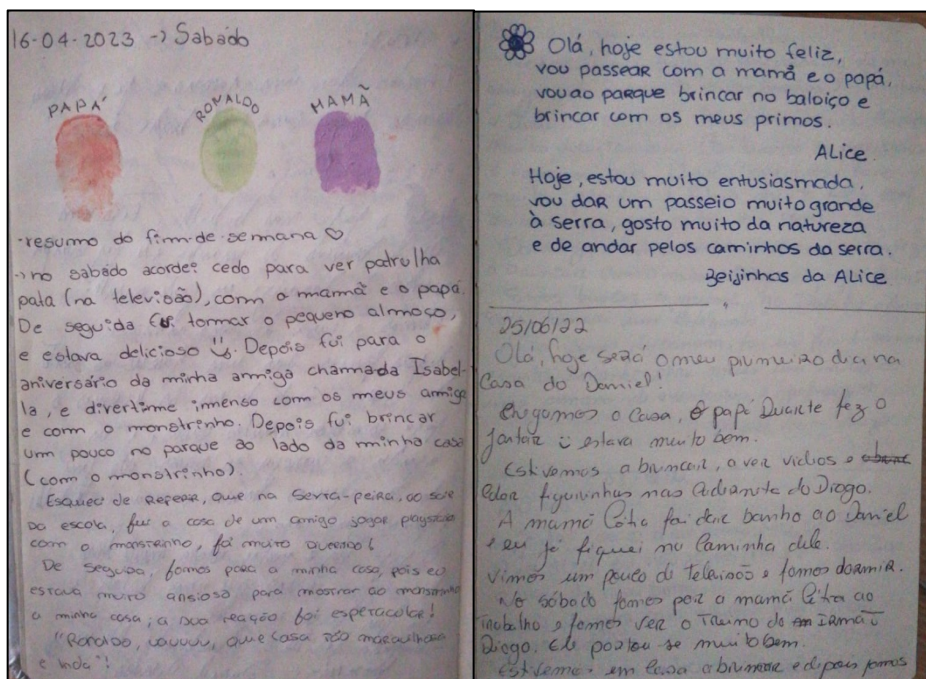 16-04-2023 -> Sabado
PAPÁ
RONALDO
MAMÃ
-resumo do fim-de-semana ♡
-> no sabado acordei cedo para ver patrulha
pata (na televisão), com a mamã e o papá.
De seguida fui tormar o pequeno almoço,
e estava delicioso. Depois fui para o
aniversário da minha amiga chamada Isabel-
la, e divertime imenso com os meus amigos
e com o monstrinho. Depois fui brincar
um pouco no parque ao lado da minha casa
(com o monstrinho).
Esqueci de referir, que na sexta-feira, ao sair
da escola, fui a casa de um amigo jogar playstation
com o monstrinho, foi muito divertido!
De seguida, fomos para a minha casa, pois eu
estava muito ansioso para mostrar ao monstrinho
a minha casa, a sua reação foi espetacular!
"Ronaldo, uauuu, que casa tão maravilhosa
e linda"!
Olá, hoje estou muito feliz,
vou passear com a mamã e o papá,
vou ao parque brincar no baloiço e
brincar com os meus primos.
Alice.
Hoje, estou muito entusiasmada,
vou dar um passeio muito grande
à serra, gosto muito da natureza
e de andar pelos caminhos da serra.
Beijinhos da Alice
25/06/22
Olá, hoje será o meu primeiro dia na
Casa do Daniel!
Chegamos a Casa, o papá Duarte fez o
jantar e estava muito bem.
Estivemos a brincar, a ver videos e
colar figurinhas na Caderneta do Diogo.
A mamã Cátia foi dar banho ao Daniel
e eu já fiquei na Caminha dele.
Vimos um pouco de televisão e fomos dormir.
No sábado fomos por a mamã Cátia ao
trabalho e fomos ver o Treino do Irmão
Diogo. Ele portou se muito bem.
Estivemos em Casa a brincar e depois fomos